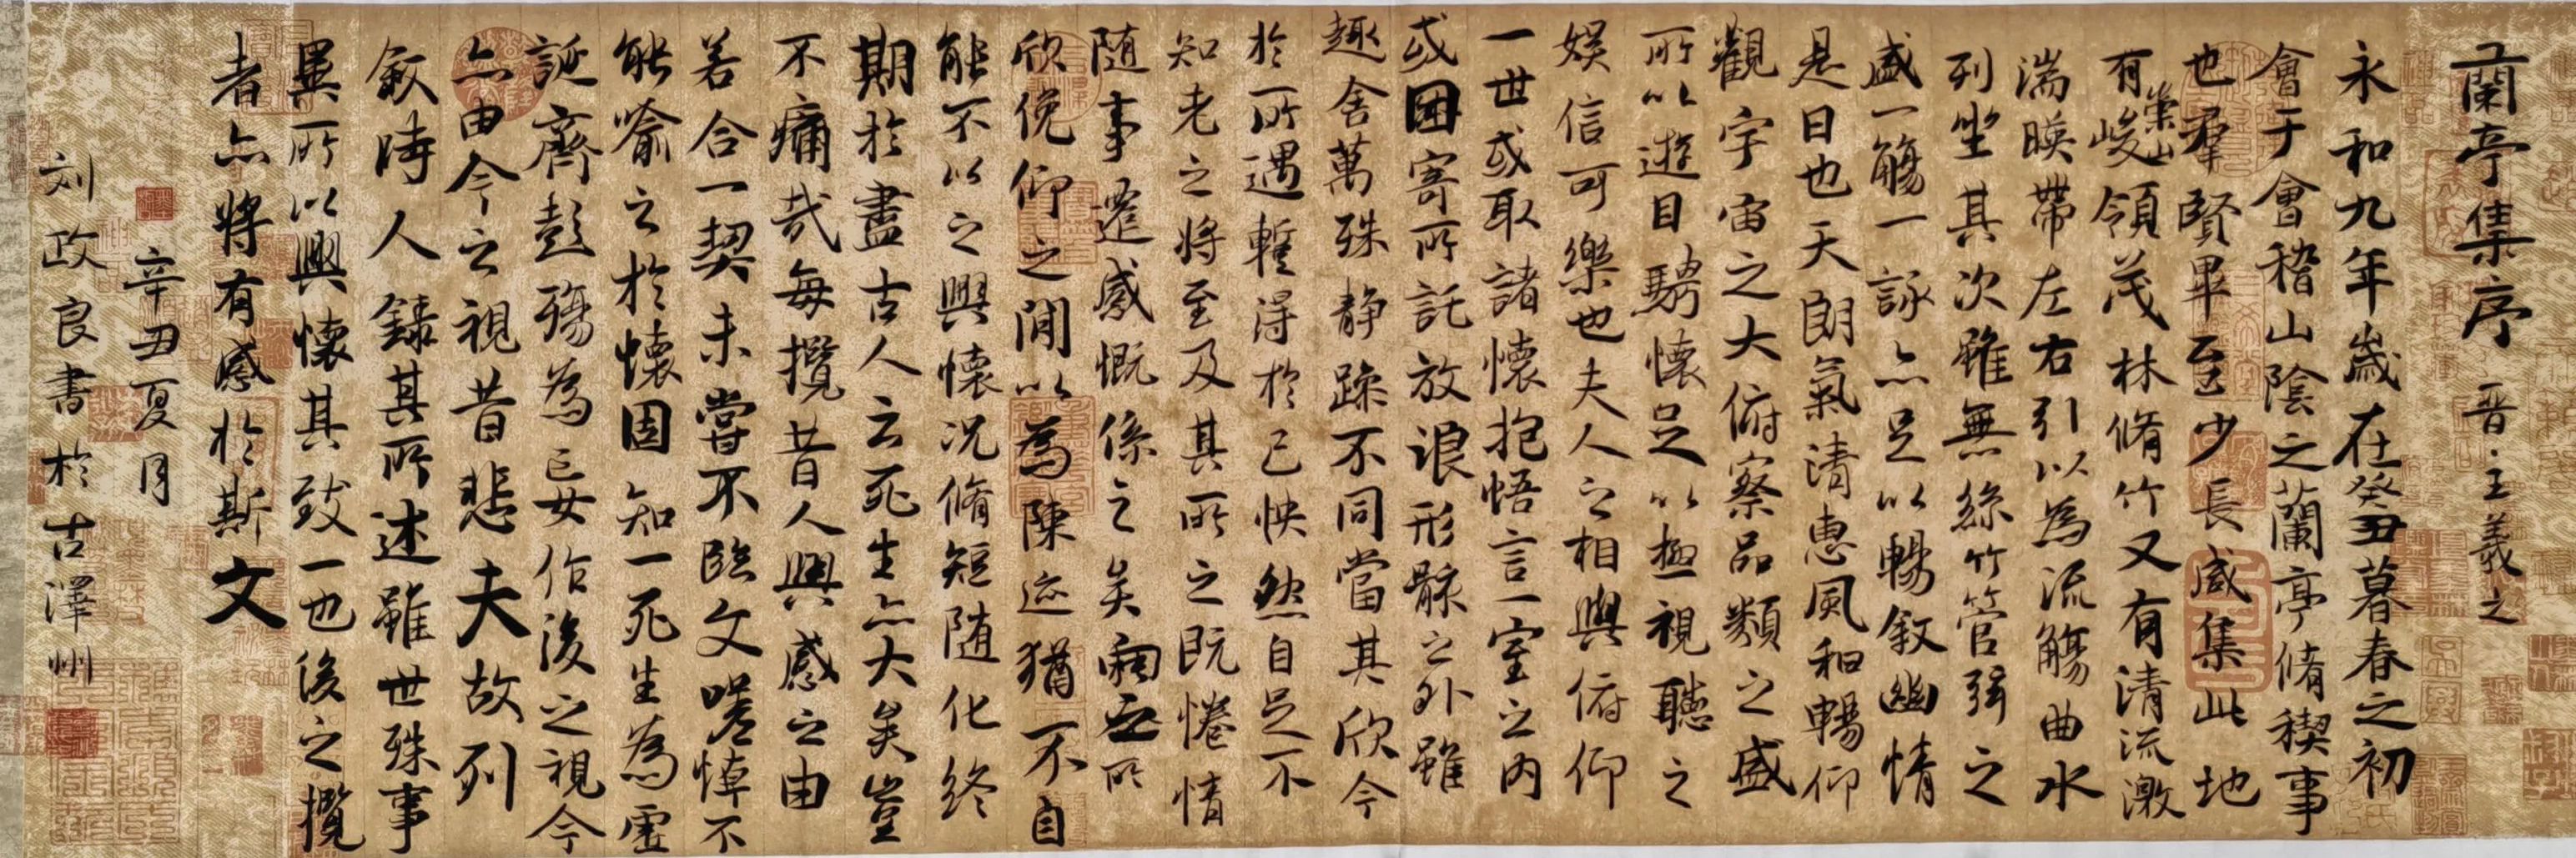 蘭亭集序 晋·王羲之
永和九年歲在癸丑暮春之初
會于會稽山陰之蘭亭脩稧事
也羣賢畢至少長咸集此地
有崇山峻領茂林脩竹又有清流激
湍暎帶左右引以為流觴曲水
列坐其次雖無絲竹管弦之
盛一觴一詠亦足以暢叙幽情
是日也天朗氣清惠風和暢仰
觀宇宙之大俯察品類之盛
所以遊目騁懷足以極視聽之
娛信可樂也夫人之相與俯仰
一世或取諸懷抱悟言一室之内
或因寄所託放浪形骸之外雖
趣舍萬殊静躁不同當其欣今
於所遇蹔得於己怏然自足不
知老之將至及其所之既惓情
随事遷感慨係之矣向之所
欣俛仰之閒以為陳迹猶不自
能不以之興懷况脩短随化終
期於盡古人云死生亦大矣豈
不痛哉每攬昔人興感之由
若合一契未嘗不臨文嗟悼不
能喻之於懷固知一死生為虛
誕齊彭殤為妄作後之視今
亦由今之視昔悲夫故列
叙時人錄其所述雖世殊事
異所以興懷其致一也後之攬
者亦將有感於斯文
辛丑夏月
刘政良書於古澤州